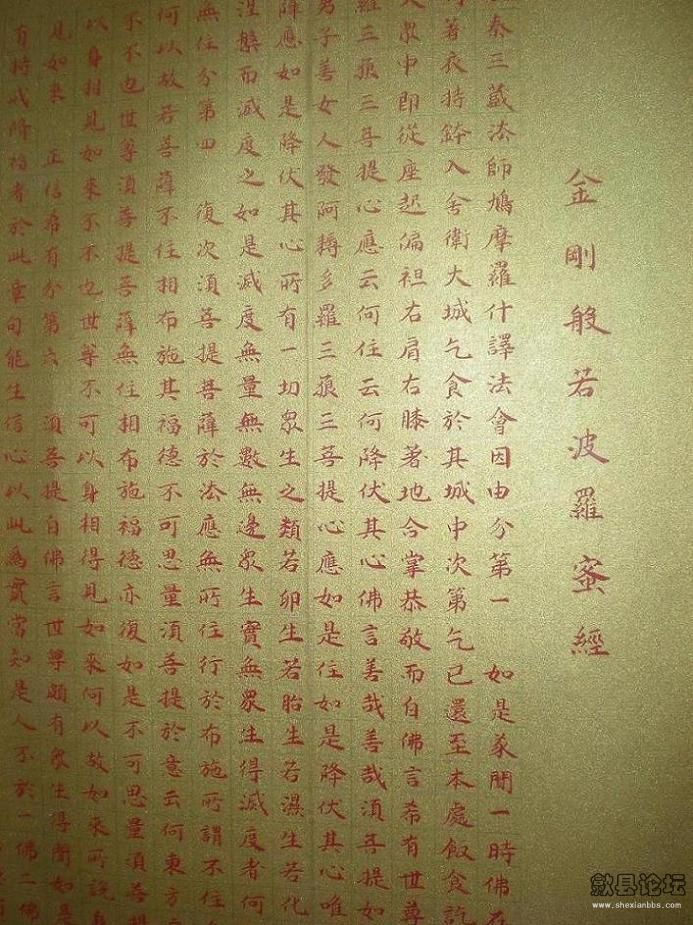 金剛般若波羅蜜經
秦三藏法師鳩摩羅什譯法會因由分第一 如是我聞一時佛在
著衣持鉢入舍衛大城乞食於其城中次第乞已還至本處飯食訖
大眾中即從座起偏袒右肩右膝著地合掌恭敬而白佛言希有世尊
羅三藐三菩提心應云何住云何降伏其心佛言善哉善哉須菩提如
男子善女人發阿耨多羅三藐三菩提心應如是住如是降伏其心唯
降應如是降伏其心所有一切眾生之類若卵生若胎生若濕生若化
涅槃而滅度之如是滅度無量無數無邊眾生實無眾生得滅度者何
無住分第四 復次須菩提菩薩於法應無所住行於布施所謂不住
何以故若菩薩不住相布施其福德不可思量須菩提於意云何東方
不不也世尊須菩提菩薩無住相布施福德亦復如是不可思量須菩提
以身相見如來不不也世尊不可以身相得見如來何以故如來所說身
見如來 正信希有分第六 須菩提白佛言世尊頗有眾生得聞如是
有持戒修福者於此章句能生信心以此為實當知是人不於一佛二佛
歙县论坛
www.shexianbbs.com